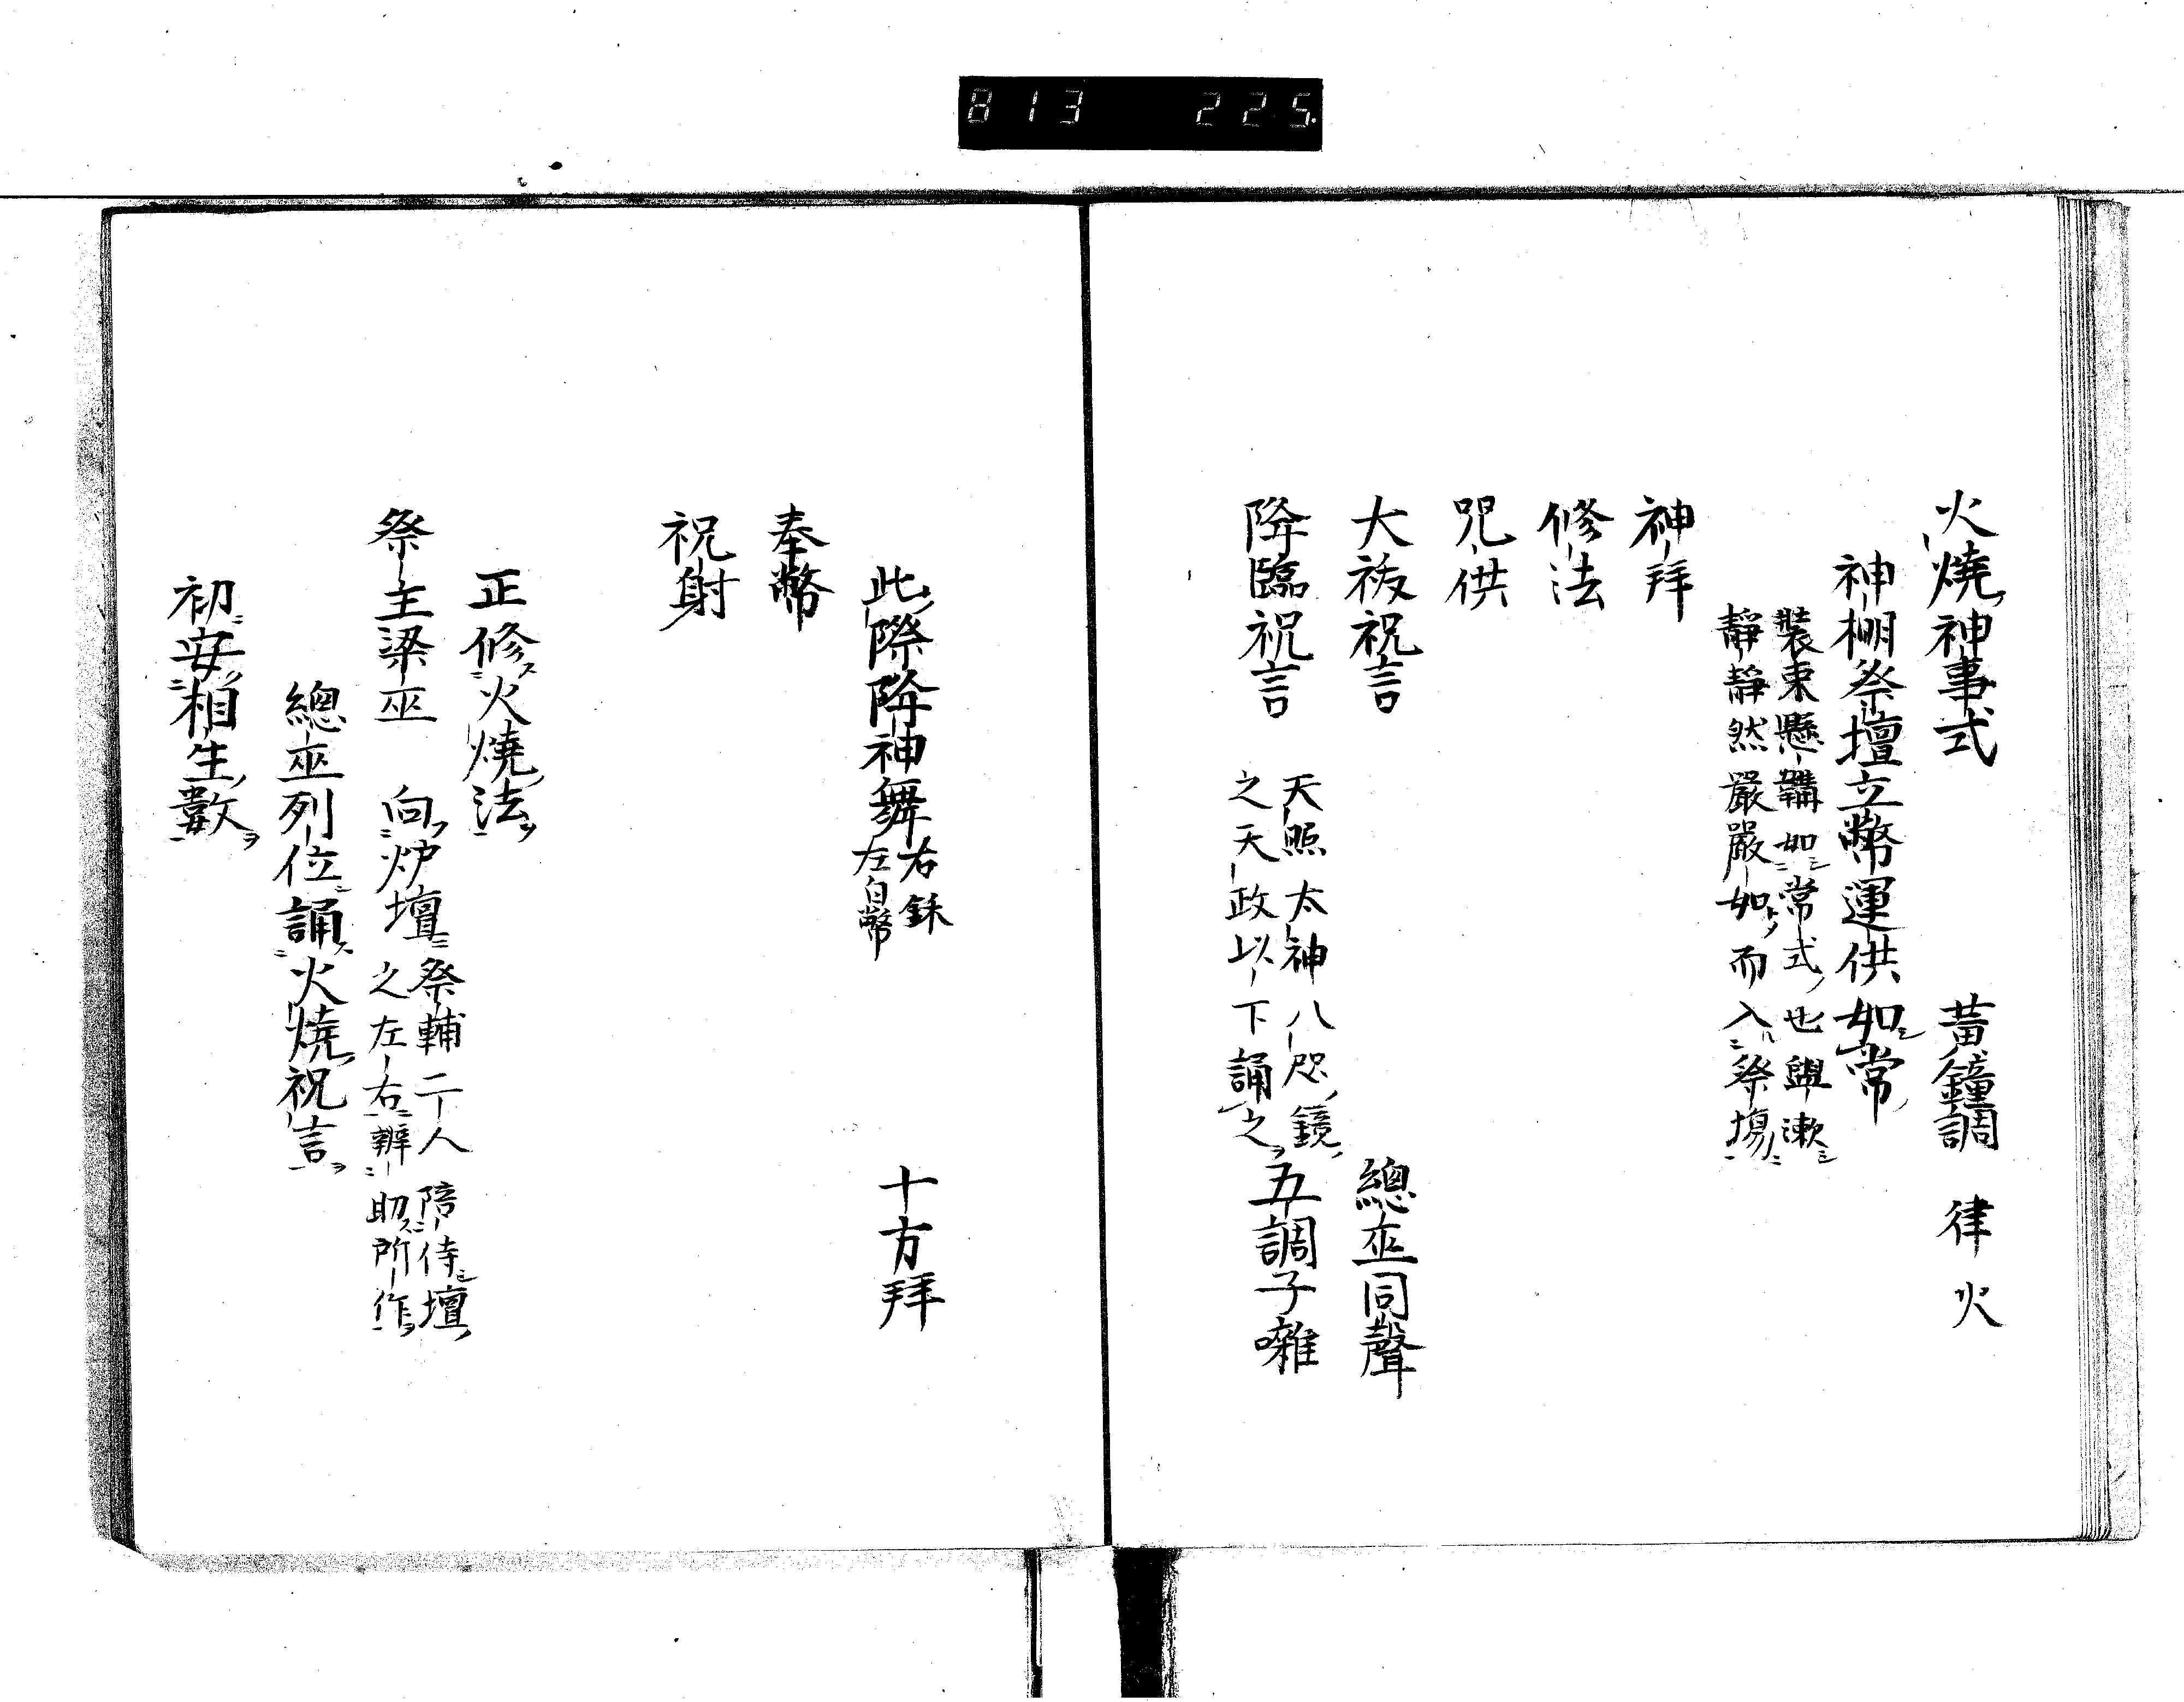 813 225.
火燒神事式 黃鐘調 律 火
神棚祭壇立幣運供如常
裝束懸鞲如常式也盥漱
靜靜然嚴嚴如而入祭場
神拜
修法
咒供
大祓祝言 總巫同聲
降臨祝言 天照太神八咫鏡
之天政以下誦之 五調子囃
此際降神舞 右鉌
左白幣 十方拜
奉幣
祝射
正修火燒法
祭主梁巫 向炉壇 祭輔二人陪侍壇
之左右辨助所作
總巫列位誦火燒祝言
初安相生數